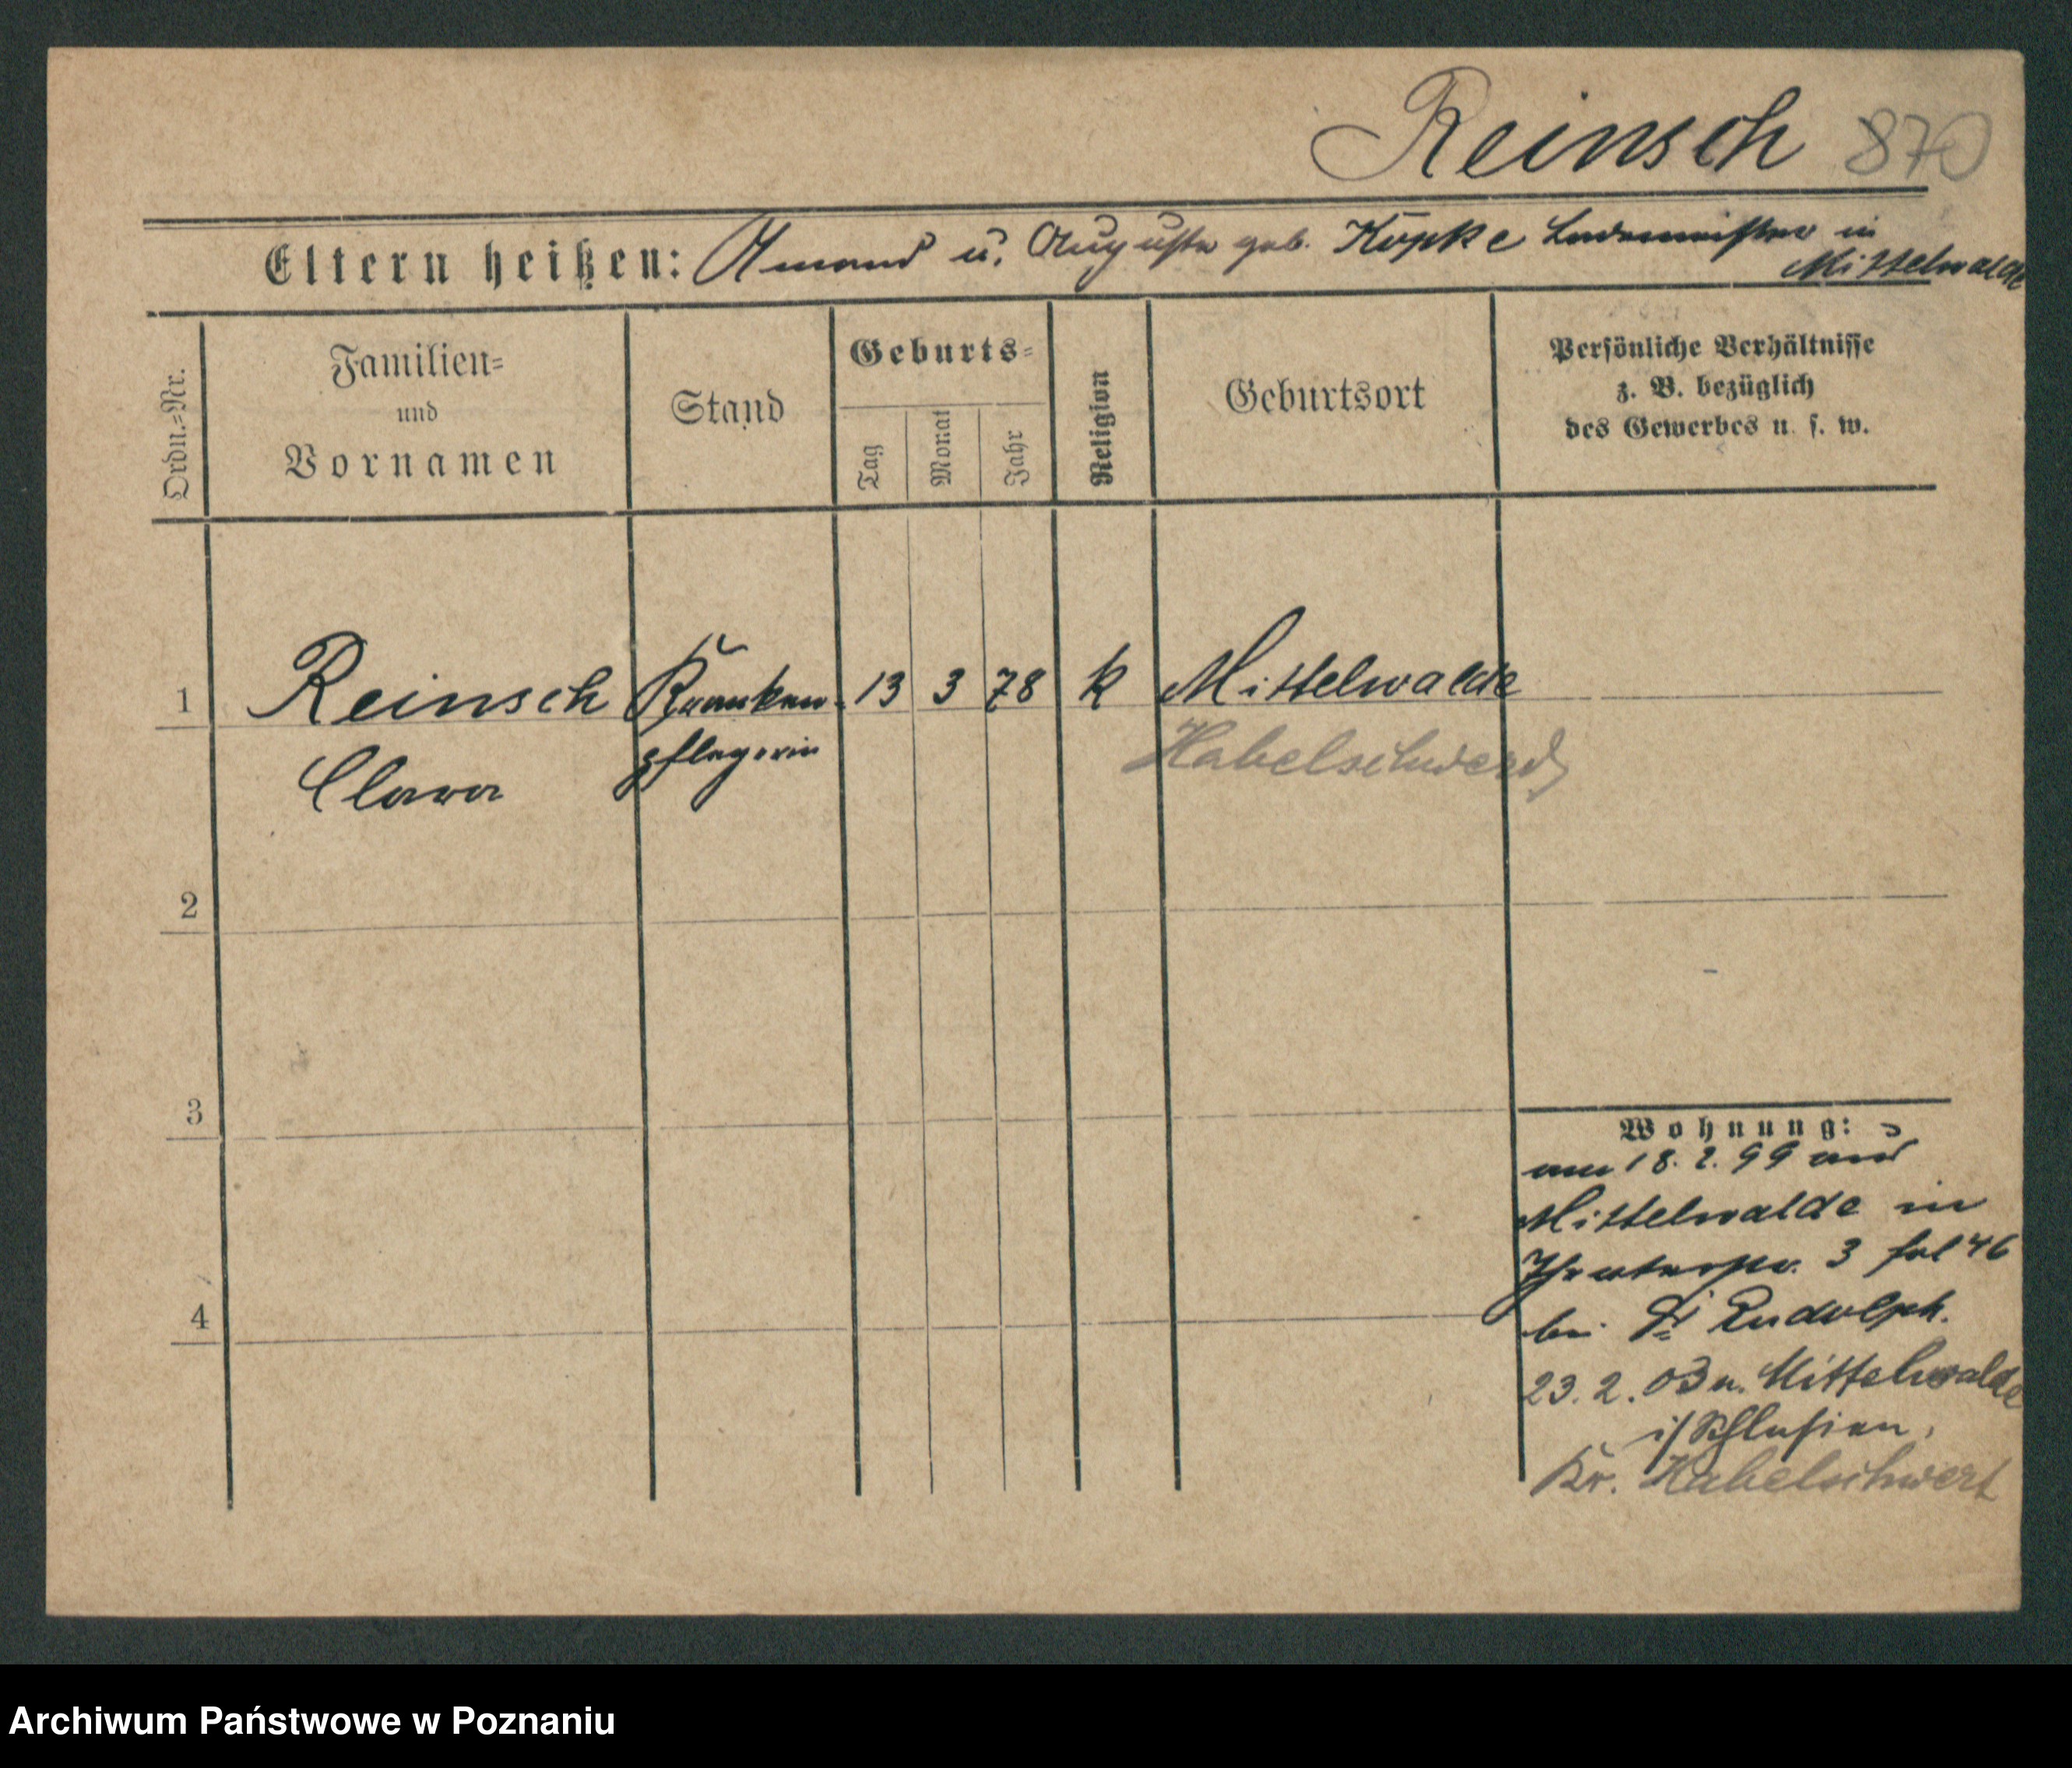 Reinsch 870
Eltern heißen: Amand u. Auguste geb. Kupke Lademeister in
Mittelwalde
Ordn.=Nr.
Familien=
und
Vornamen
Stand
Geburts=
Tag
Monat
Jahr
Religion
Geburtsort
Persönliche Verhältnisse
z. B. bezüglich
des Gewerbes u. s. w.
1 Reinsch Kranken- 13 3 78 k Mittelwalde
Clara pflegerin Habelschwerd
2
3
4
Wohnung:
am 18. 2. 99 aus
Mittelwalde in
Theaterstr. 3 fol 46
bei Dr Rudolph.
23. 2. 03 n. Mittelwalde
i/Schlesien,
Kr. Habelschwert
Archiwum Państwowe w Poznaniu